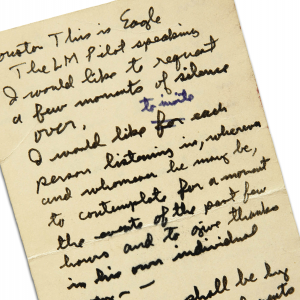 ouston This is Eagle
The LM Pilot speaking
I would like to request
a few moments of silence
over.
to invite
I would like for each
person listening in, wherever
and whomever he may be,
to contemplate for a moment
the events of the past few
hours and to give thanks
in his own individual
way —
shall be my